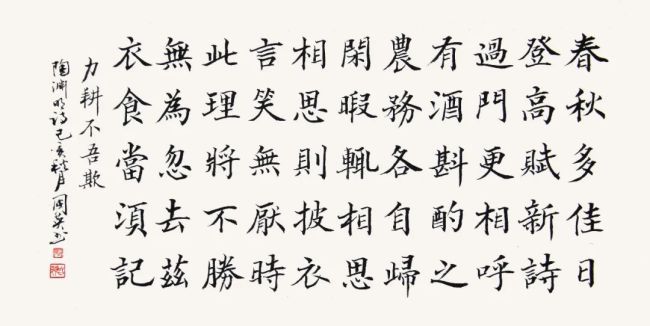 春秋多佳日
登高賦新詩
過門更相呼
有酒斟酌之
農務各自歸
閑暇輒相思
相思則披衣
言笑無厭時
此理將不勝
無為忽去茲
衣食當湏記
力耕不吾欺
陶渊明詩己亥秋月国英书